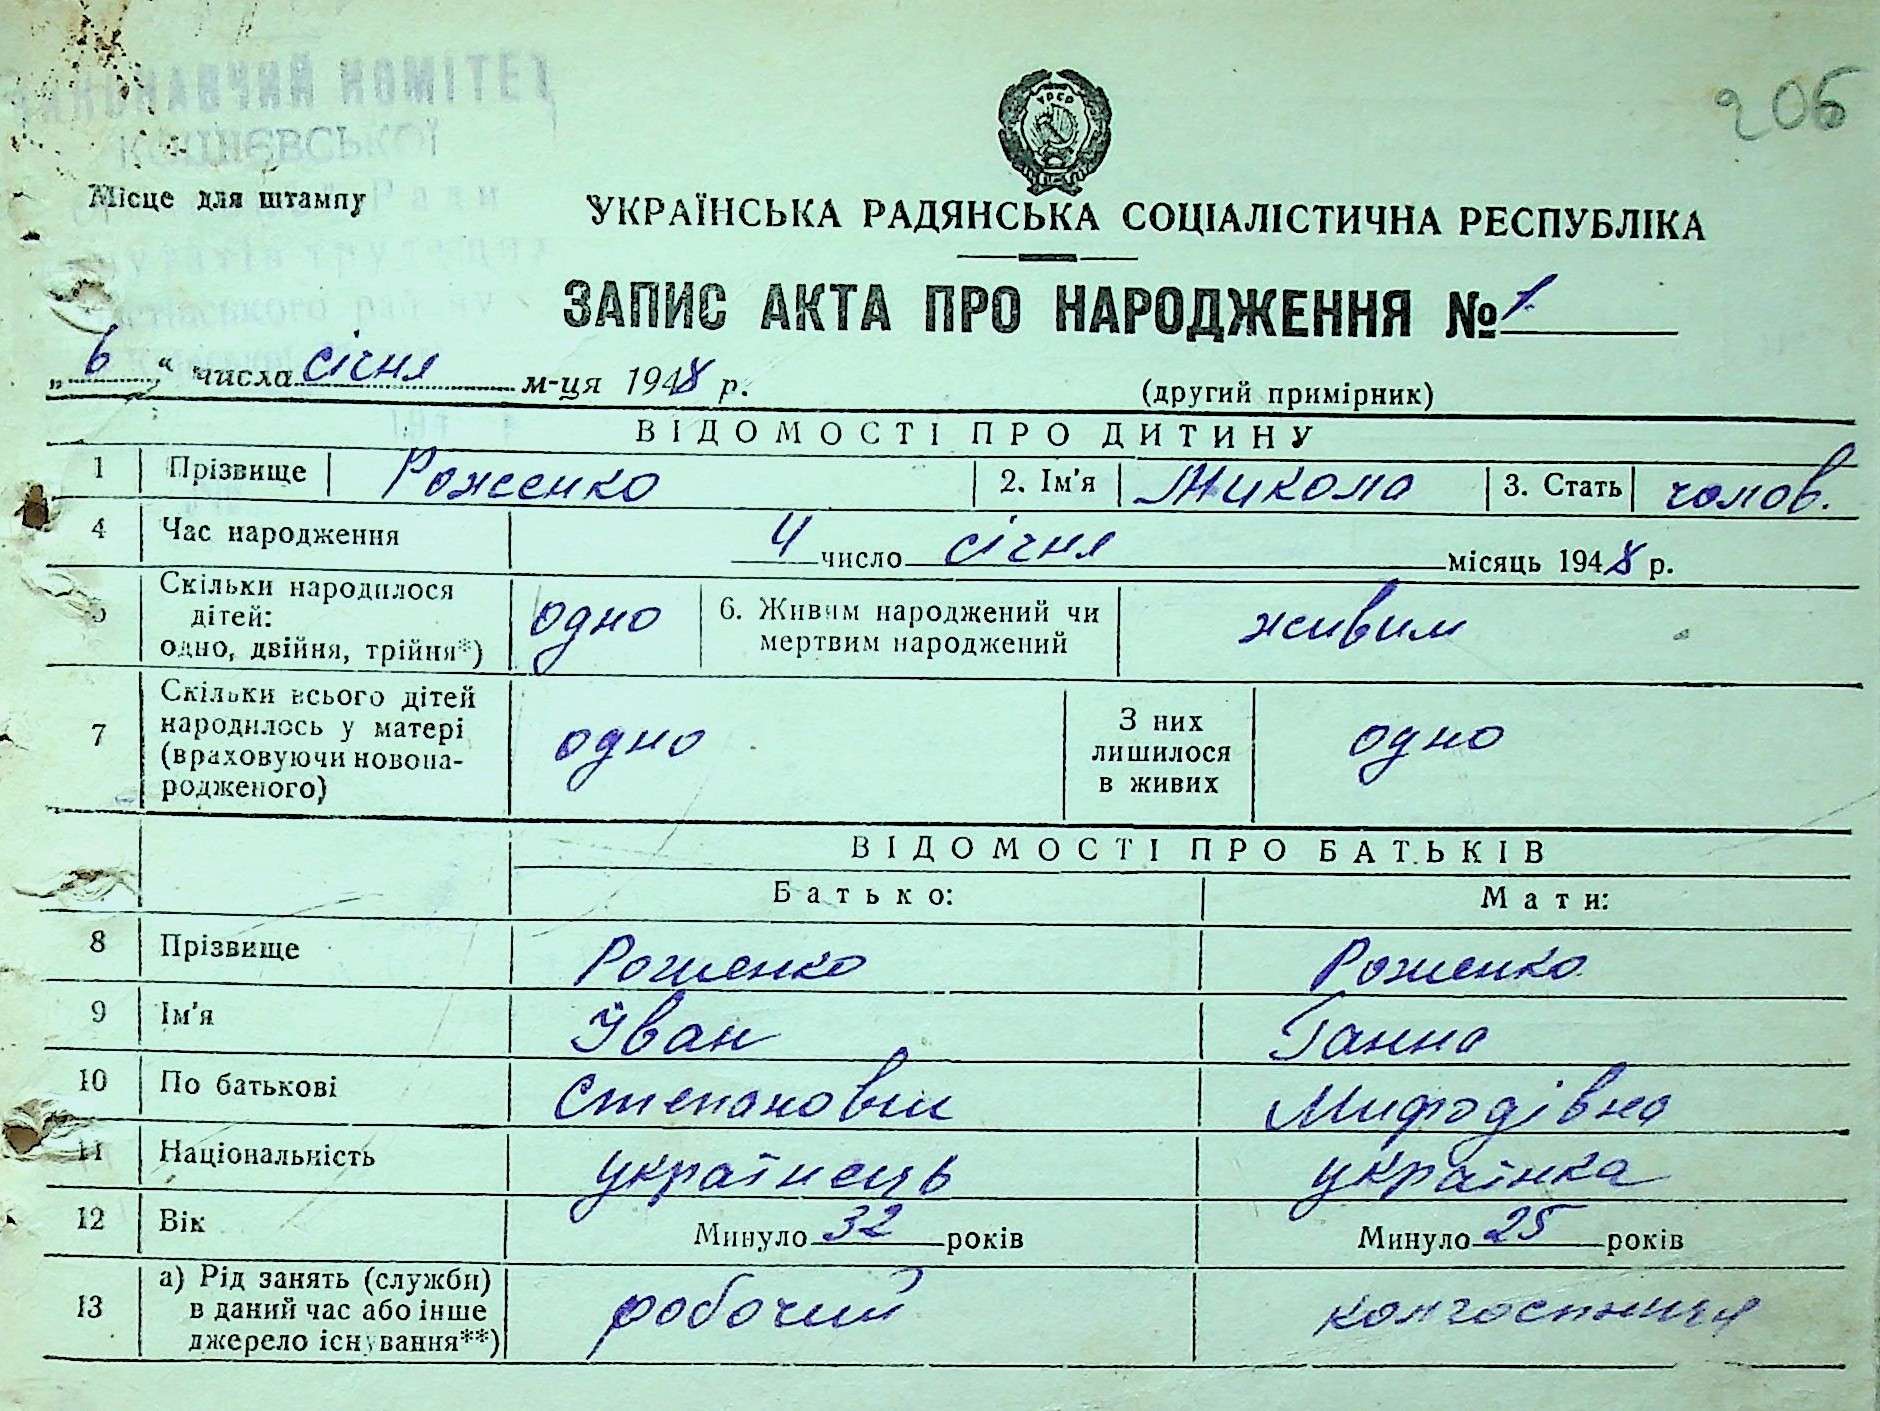 206
УРСР
ВИКОНАВЧИЙ КОМІТЕТ
Ради
Місце для штампу
УКРАЇНСЬКА РАДЯНСЬКА СОЦІАЛІСТИЧНА РЕСПУБЛІКА
ЗАПИС АКТА ПРО НАРОДЖЕННЯ № 1
„ 6 “ числа січня м-ця 1948 р.
(другий примірник)
ВІДОМОСТІ ПРО ДИТИНУ
1 Прізвище Роженко 2. Ім'я Микола 3. Стать чолов.
4 Час народження 4 число січня місяць 1948 р.
5 Скільки народилося
дітей:
одно, двійня, трійня*)
одно
6. Живим народжений чи
мертвим народжений
живим
7 Скільки всього дітей
народилось у матері
(враховуючи новона-
родженого)
одно
З них
лишилося
в живих
одно
ВІДОМОСТІ ПРО БАТЬКІВ
Батько: Мати:
8 Прізвище Роженко Роженко
9 Ім'я Іван Ганна
10 По батькові Степанович Мифодівна
11 Національність українець українка
12 Вік Минуло 32 років Минуло 25 років
13 а) Рід занять (служби)
в даний час або інше
джерело існування**)
робочий колгоспниця